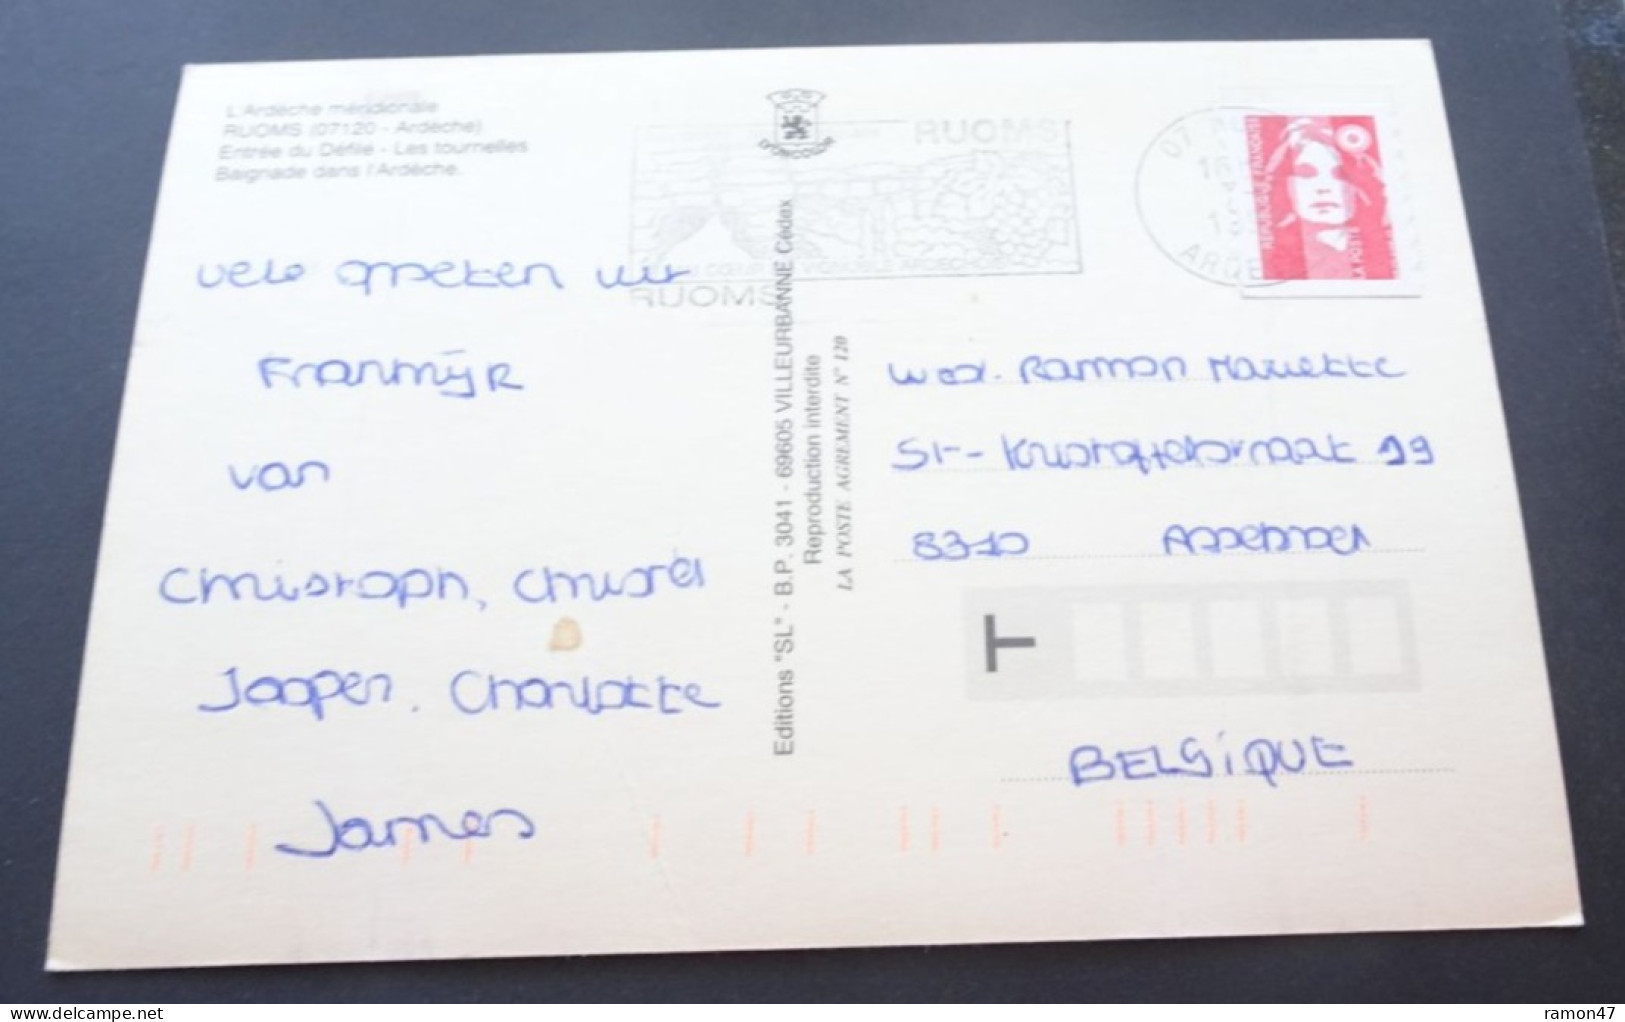 L'Ardèche méridionale
RUOMS (07120 - Ardèche)
Entrée du Défilé - Les tournelles
Baignade dans l'Ardèche.
LYONCOLOR
RUOMS
RUOMS
07
ARDE
REPUBLIQUE FRANÇAISE
LA POSTE
Vele groeten uit
Frankrijk
van
Christoph, Christel
Jasper, Charlotte
James
Editions "SL" - B.P. 3041 - 69605 VILLEURBANNE Cédex
Reproduction interdite
LA POSTE AGREMENT N° 120
Wed. Ramon Mariette
St-Kristoffelstraat 99
8310 Assebroek
T
BELGIQUE
ramon47